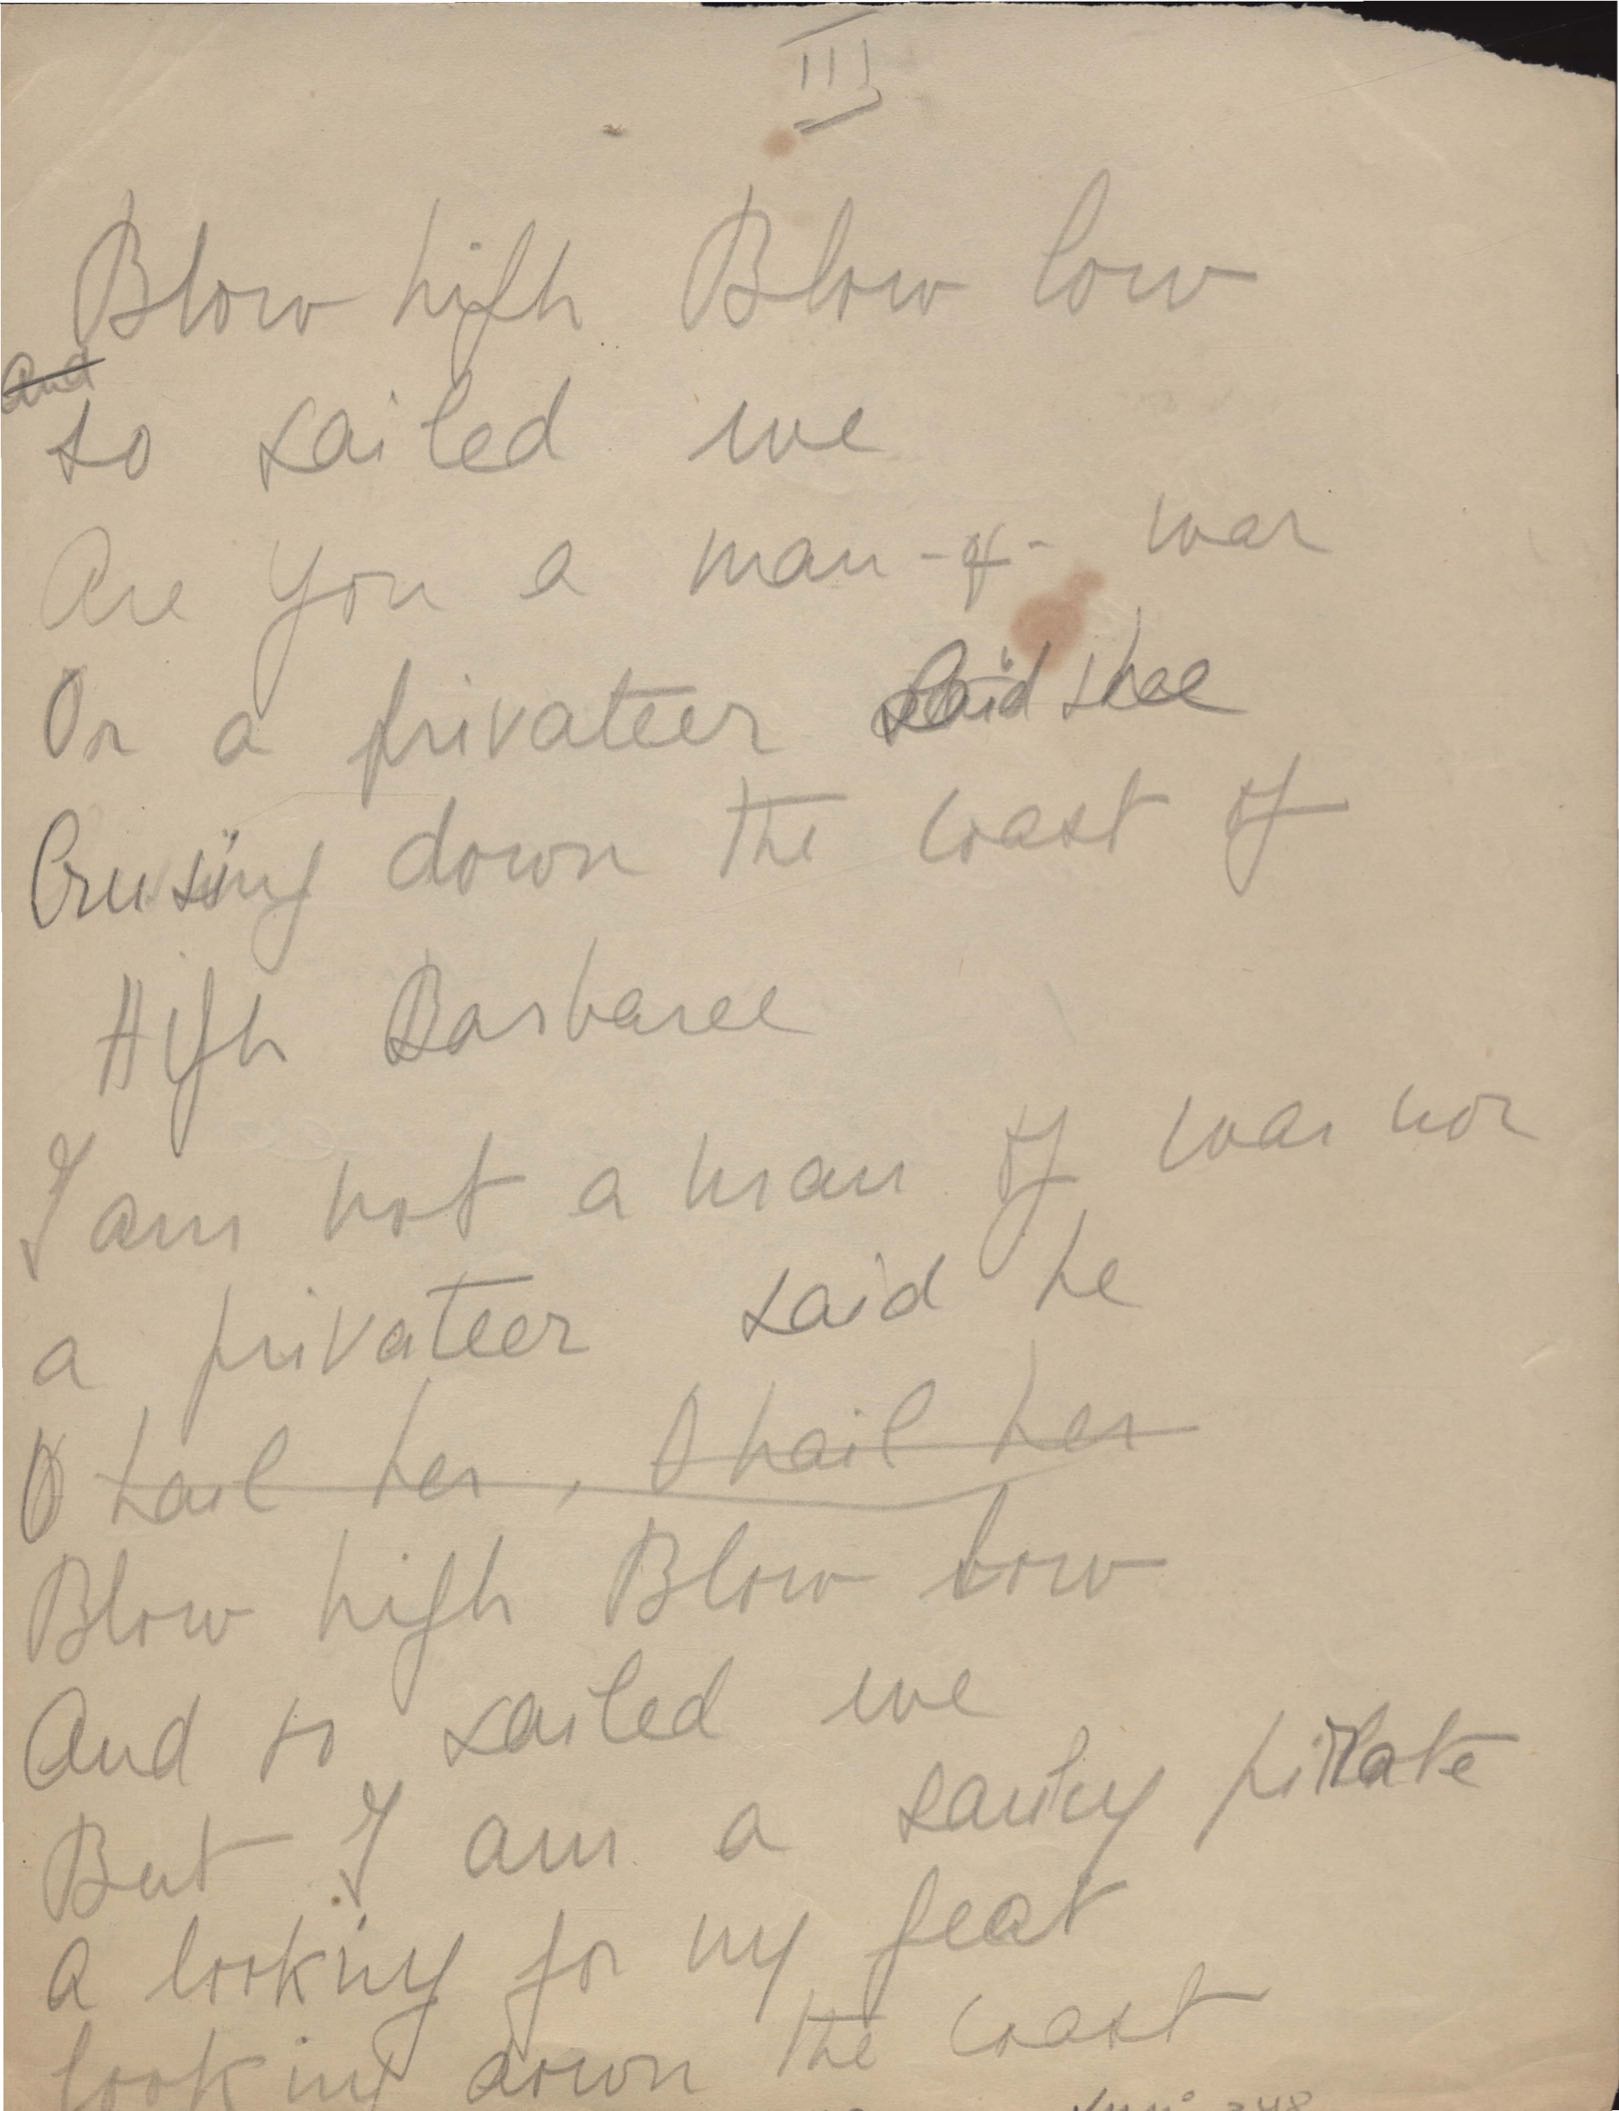 III
Blow high Blow low
And
so sailed we
Are you a man-of-war
Or a privateer said shee
Cruising down the coast of
High Barbaree
I am not a man of war nor
a privateer said he
O hail her, O hail her
Blow high Blow low
And so sailed we
But I am a saulty pirate
A looking for my feat
looking down the coast